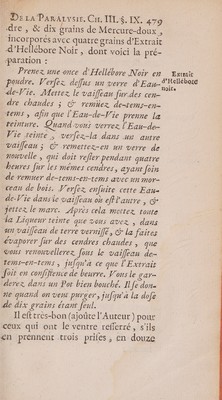 DE LA PARALYSIE. CH. III. §. IX. 479
dre, & dix grains de Mercure-doux,
incorporés avec quatre grains d'Extrait
d'Hellébore Noir, dont voici la pré-
paration :
Prenez une once d'Hellébore Noir en
poudre. Versez dessus un verre d'Eau-
de-Vie. Mettez le vaisseau sur des cen-
dre chaudes ; & remüez de-tems-en-
tems, afin que l'Eau-de-Vie prenne la
teinture. Quand vous verrez l'Eau-de-
Vie teinte, versez-la dans un autre
vaisseau ; & remettez-en un verre de
nouvelle, qui doit rester pendant quatre
heures sur les mêmes cendres, ayant soin
de remuer de-tems-en-tems avec un mor-
ceau de bois. Versez ensuite cette Eau-
de-Vie dans le vaisseau où est l'autre, &
jettez le marc. Après cela mettez toute
la Liqueur teinte que vous avez, dans
un vaisseau de terre vernissé, & la faites
évaporer sur des cendres chaudes, que
vous renouvellerez sous le vaisseau de-
tems-en-tems, jusqu'à ce que l'Extrait
soit en consistence de beurre. Vous le gar-
derez dans un Pot bien bouché. Il se don-
ne quand on veut purger, jusqu'à la dose
de dix grains étant seul.
Il est très-bon (ajoûte l'Auteur) pour
ceux qui ont le ventre resserré, s'ils
en prennent trois prises, en douze
Extrait
d'Hellébore
noir.